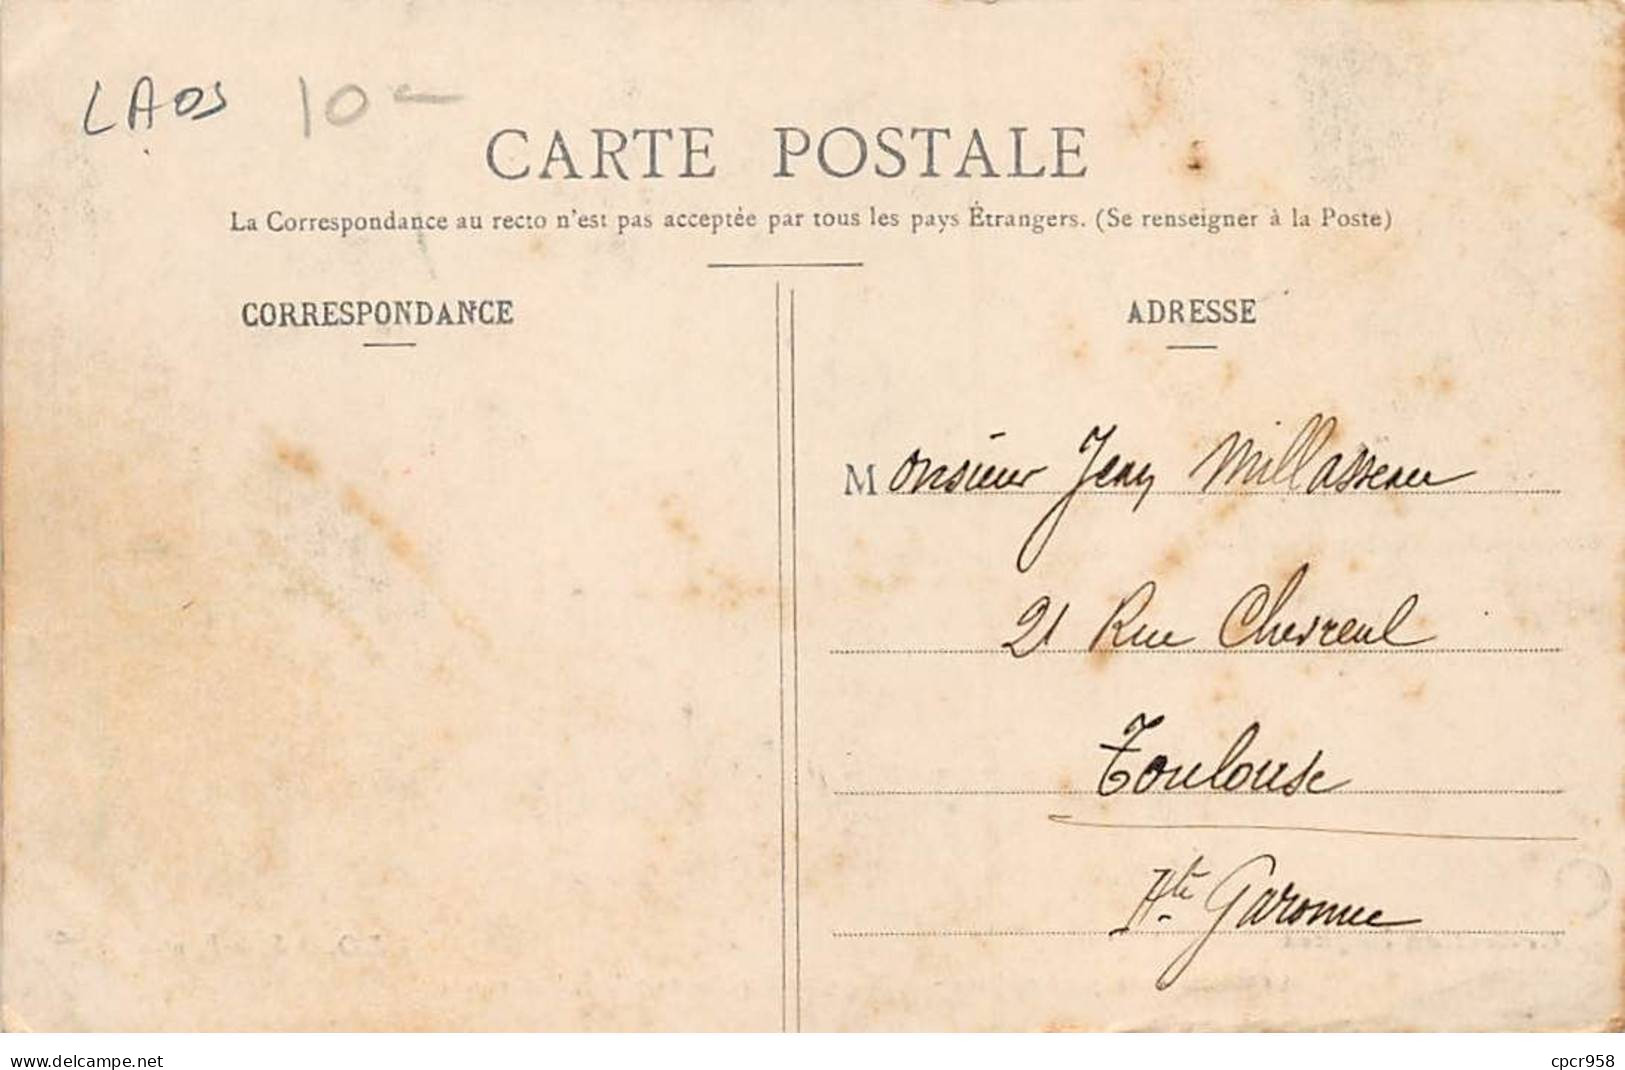 LAOS 10-
CARTE POSTALE
La Correspondance au recto n'est pas acceptée par tous les pays Étrangers. (Se renseigner à la Poste)
CORRESPONDANCE
ADRESSE
Monsieur Jean Millasseau
21 Rue Chevreul
Toulouse
Hte Garonne
www.delcampe.net
cpcr958